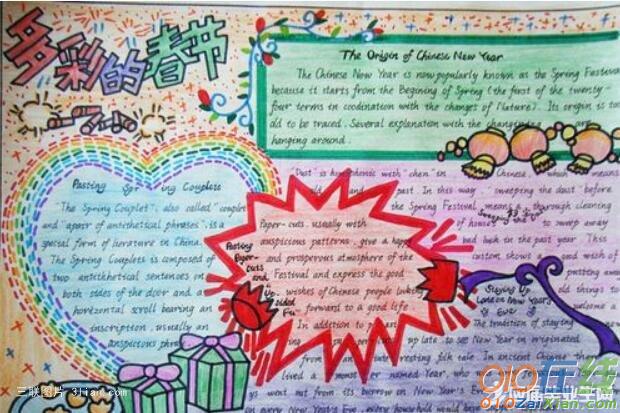 多彩的春节
The Origin of Chinese New Year
The Chinese New Year is now popularly known as the Spring Festival
because it starts from the Begining of Spring (the first of the twenty-
four terms in coodination with the changes of Nature). Its origin is too
old to be traced. Several explanation with the are
hanging around.
Pasting Couplets
"The Spring Couplet", also called "couplet"
and "apair of antithetical phrases", is a
special form of lierature in China.
The Spring Couplets is composed of
two antithetical sentences on
both sides of the door and a
horizontal scroll bearing an
inscription, usually an
auspicious phra
Pasting
Paper-
cuts
and
Up
sided
Fu
Paper-cuts, usually with
auspicious patterns, give a happy
and prosperous atmosphere of the
Festival and express the good
wishes of Chinese people looking
forward to a good life.
In addition to p
"Dust" is with "chen" in Chinese, which means
old and past. In this way, "sweeping the dust" before
the Spring Festival means a thorough cleaning
Sweeping the Dust
of house to sweep away
bad luck in the past year. This
custom shows a good wish of
putting away
old things to
welcome a
Staying Up
New Year's
Eve
The tradition of staying
up late to see New Year in originated
from an interesting folk tale. In ancient China there
lived a monster named Year, who was
went out from its burrow on New Year's Eve
三联图片 3lian.com
010在线
010zaixian.com